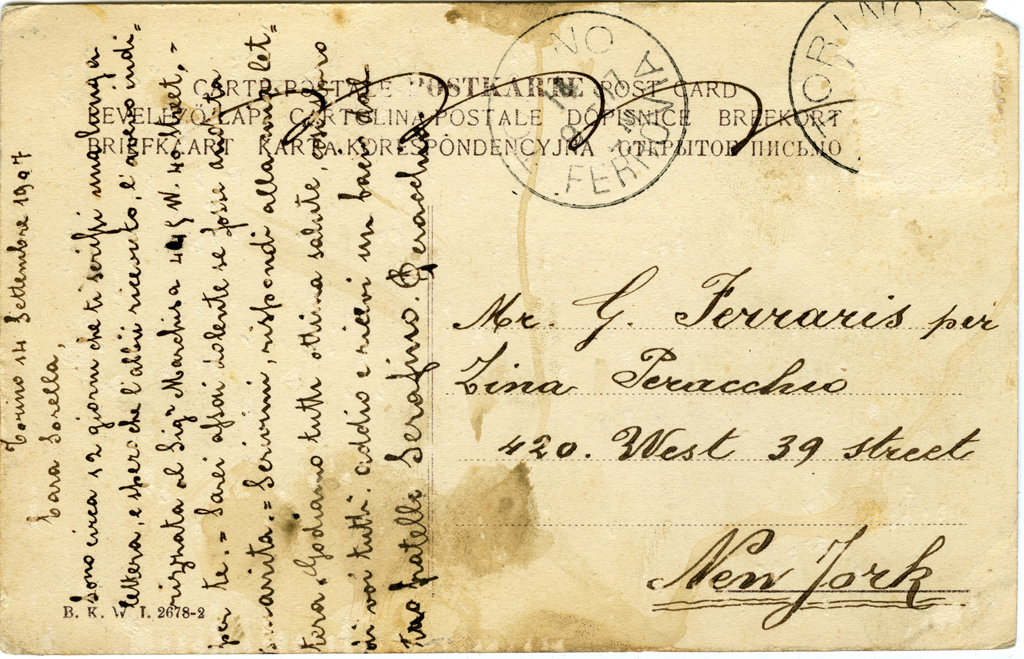 CARTE POSTALE POSTKARTE POST CARD
LEVELEZÖ-LAP CARTOLINA POSTALE DOPISNICE BREFKORT
BRIEFKAART KARTA KORESPONDENCYJNA ОТКРЫТОЕ ПИСЬМО
TORINO
FERROVIA
TORINO
Torino 14 Settembre 1907
Cara Sorella,
Sono circa 12 giorni che ti scrissi una lunga
lettera, e spero che l'abbi ricevuto, l'avevo indi-
rizzata al Sigr Marchisa 444 W. 40 Street,
per te. = Sarei assai dolente se fosse andata
smarita. = Scrivimi, rispondi alla mia let-
tera. Godiamo tutti ottima salute, così spero
di voi tutti. Addio e ricevi un bacio dal
tuo fratello Serafino Peracchio
Mr. G. Ferraris per
Zina Peracchio
420. West 39 street
New York
B. K. W. I. 2678-2